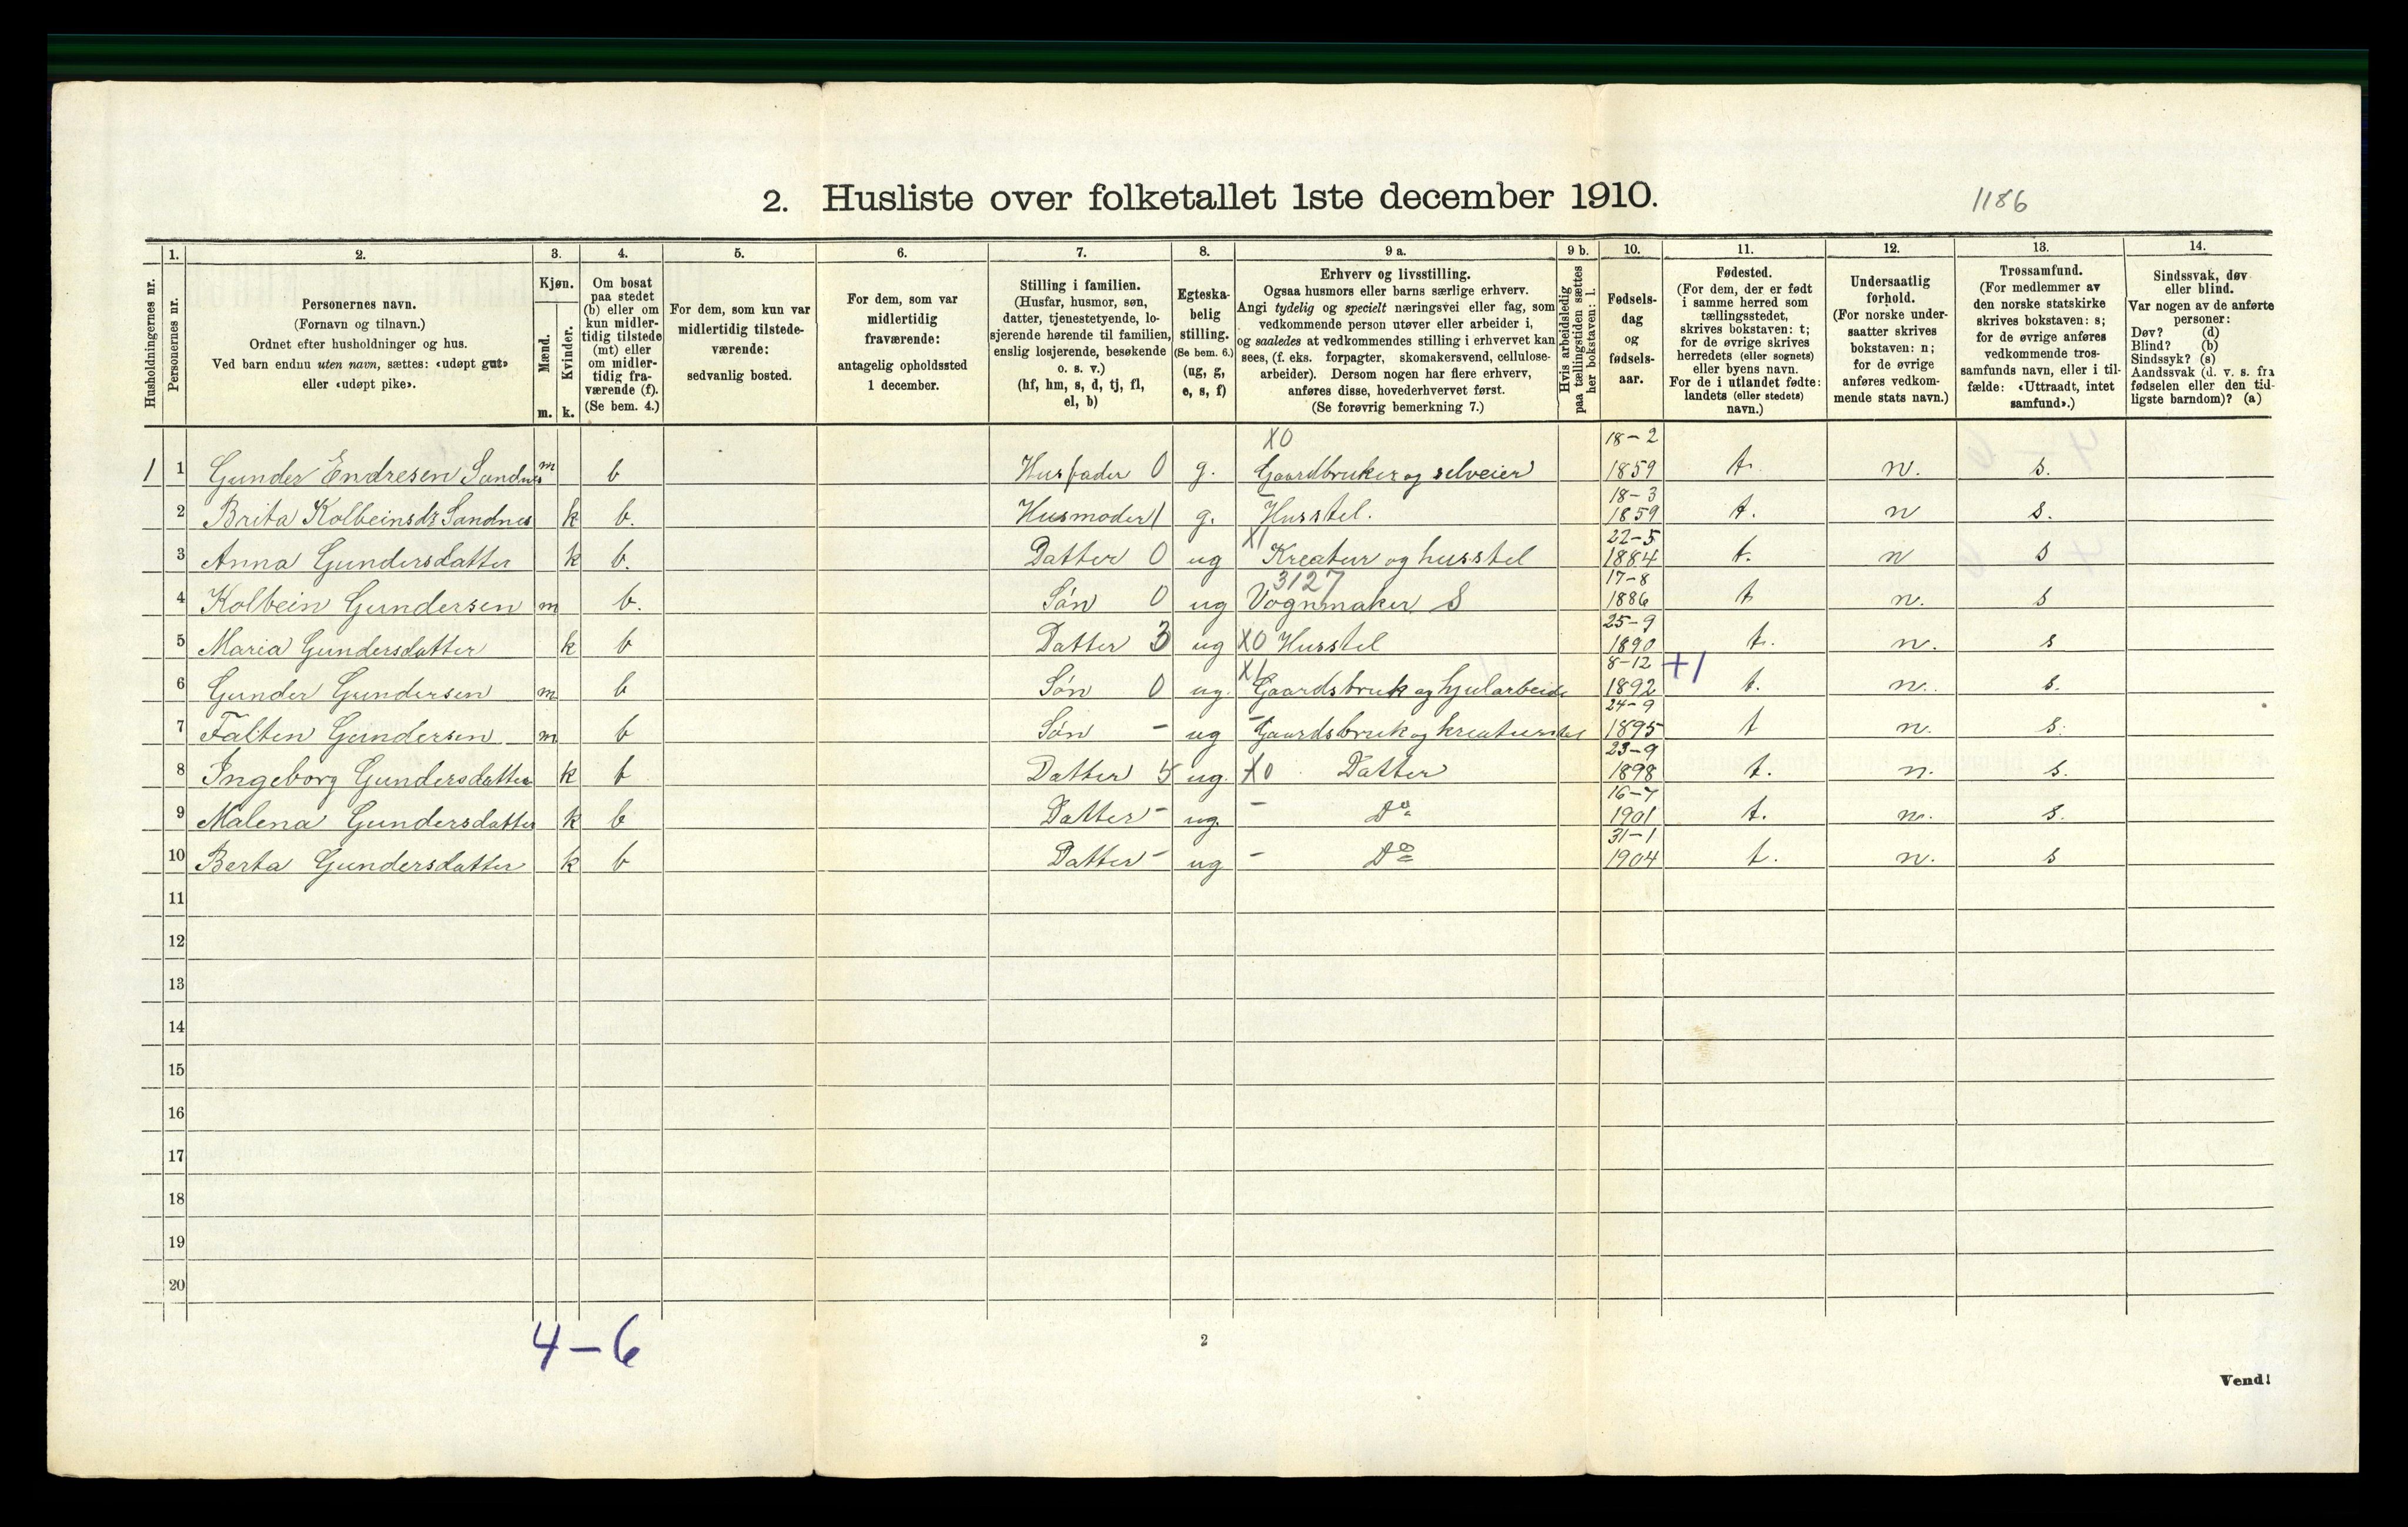 2. Husliste over folketallet 1ste december 1910.
1186
1. 2. 3. 4. 5. 6. 7. 8. 9 a. 9 b. 10. 11. 12. 13. 14.
Husholdningernes nr.
Personernes nr.
Personernes navn.
(Fornavn og tilnavn.)
Ordnet efter husholdninger og hus.
Ved barn endnu uten navn, sættes: «udøpt gut»
eller «udøpt pike».
Kjøn.
Mænd.
Kvinder.
m. k.
Om bosat
paa stedet
(b) eller om
kun midler-
tidig tilstede
(mt) eller
om midler-
tidig fra-
værende (f).
(Se bem. 4.)
For dem, som kun var
midlertidig tilstede-
værende:
sedvanlig bosted.
For dem, som var
midlertidig
fraværende:
antagelig opholdssted
1 december.
Stilling i familien.
(Husfar, husmor, søn,
datter, tjenestetyende, lo-
sjerende hørende til familien,
enslig losjerende, besøkende
o. s. v.)
(hf, hm, s, d, tj, fl,
el, b)
Egteska-
belig
stilling.
(Se bem. 6.)
(ug, g,
e, s, f)
Erhverv og livsstilling.
Ogsaa husmors eller barns særlige erhverv.
Angi tydelig og specielt næringsvei eller fag, som
vedkommende person utøver eller arbeider i,
og saaledes at vedkommendes stilling i erhvervet kan
sees, (f. eks. forpagter, skomakersvend, cellulose-
arbeider). Dersom nogen har flere erhverv,
anføres disse, hovederhvervet først.
(Se forøvrig bemerkning 7.)
Hvis arbeidsledig
paa tællingstiden sættes
her bokstaven: l.
Fødsels-
dag
og
fødsels-
aar.
Fødested.
(For dem, der er født
i samme herred som
tællingsstedet,
skrives bokstaven: t;
for de øvrige skrives
herredets (eller sognets)
eller byens navn.
For de i utlandet fødte:
landets (eller stedets)
navn.)
Undersaatlig
forhold.
(For norske under-
saatter skrives
bokstaven: n;
for de øvrige
anføres vedkom-
mende stats navn.)
Trossamfund.
(For medlemmer av
den norske statskirke
skrives bokstaven: s;
for de øvrige anføres
vedkommende tros-
samfunds navn, eller i til-
fælde: «Uttraadt, intet
samfund».)
Sindssvak, døv
eller blind.
Var nogen av de anførte
personer:
Døv? (d)
Blind? (b)
Sindssyk? (s)
Aandssvak (d. v. s. fra
fødselen eller den tid-
ligste barndom)? (a)
X0 18-2
1 1 Gunder Endresen Sandnes m b Husfader 0 g. Gaardbruker og selveier 1859 t. n. s.
18-3
2 Brita Kolbeinsdr Sandnes k b. Husmoder 1 g. Husstel. 1859 t. n s.
X1 22-5
3 Anna Gundersdatter k b. Datter 0 ug Kreatur og husstel 1884 t. n s
3127 17-8
4 Kolbein Gundersen m b. Søn 0 ug Vognmaker S 1886 t n. s
25-9
5 Maria Gundersdatter k b Datter 3 ug X0 Husstel 1890 t. n. s
X1 8-12 +1
6 Gunder Gundersen m b Søn 0 ug. Gaardsbruk og hjularbeide 1892 t. n. s.
24-9
7 Falten Gundersen m b Søn - ug - Gaardsbruk og kreaturstel 1895 t n. s.
23-9
8 Ingeborg Gundersdatter k b Datter 5 ug. X0 Datter 1898 t. n. s.
16-7
9 Malena Gundersdatter k b Datter - ug. - Do 1901 t. n. s.
31-1
10 Berta Gundersdatter k b Datter - ug - Do 1904 t. n. s
11
12
13
14
15
16
17
18
19
20
4-6
2
Vend!